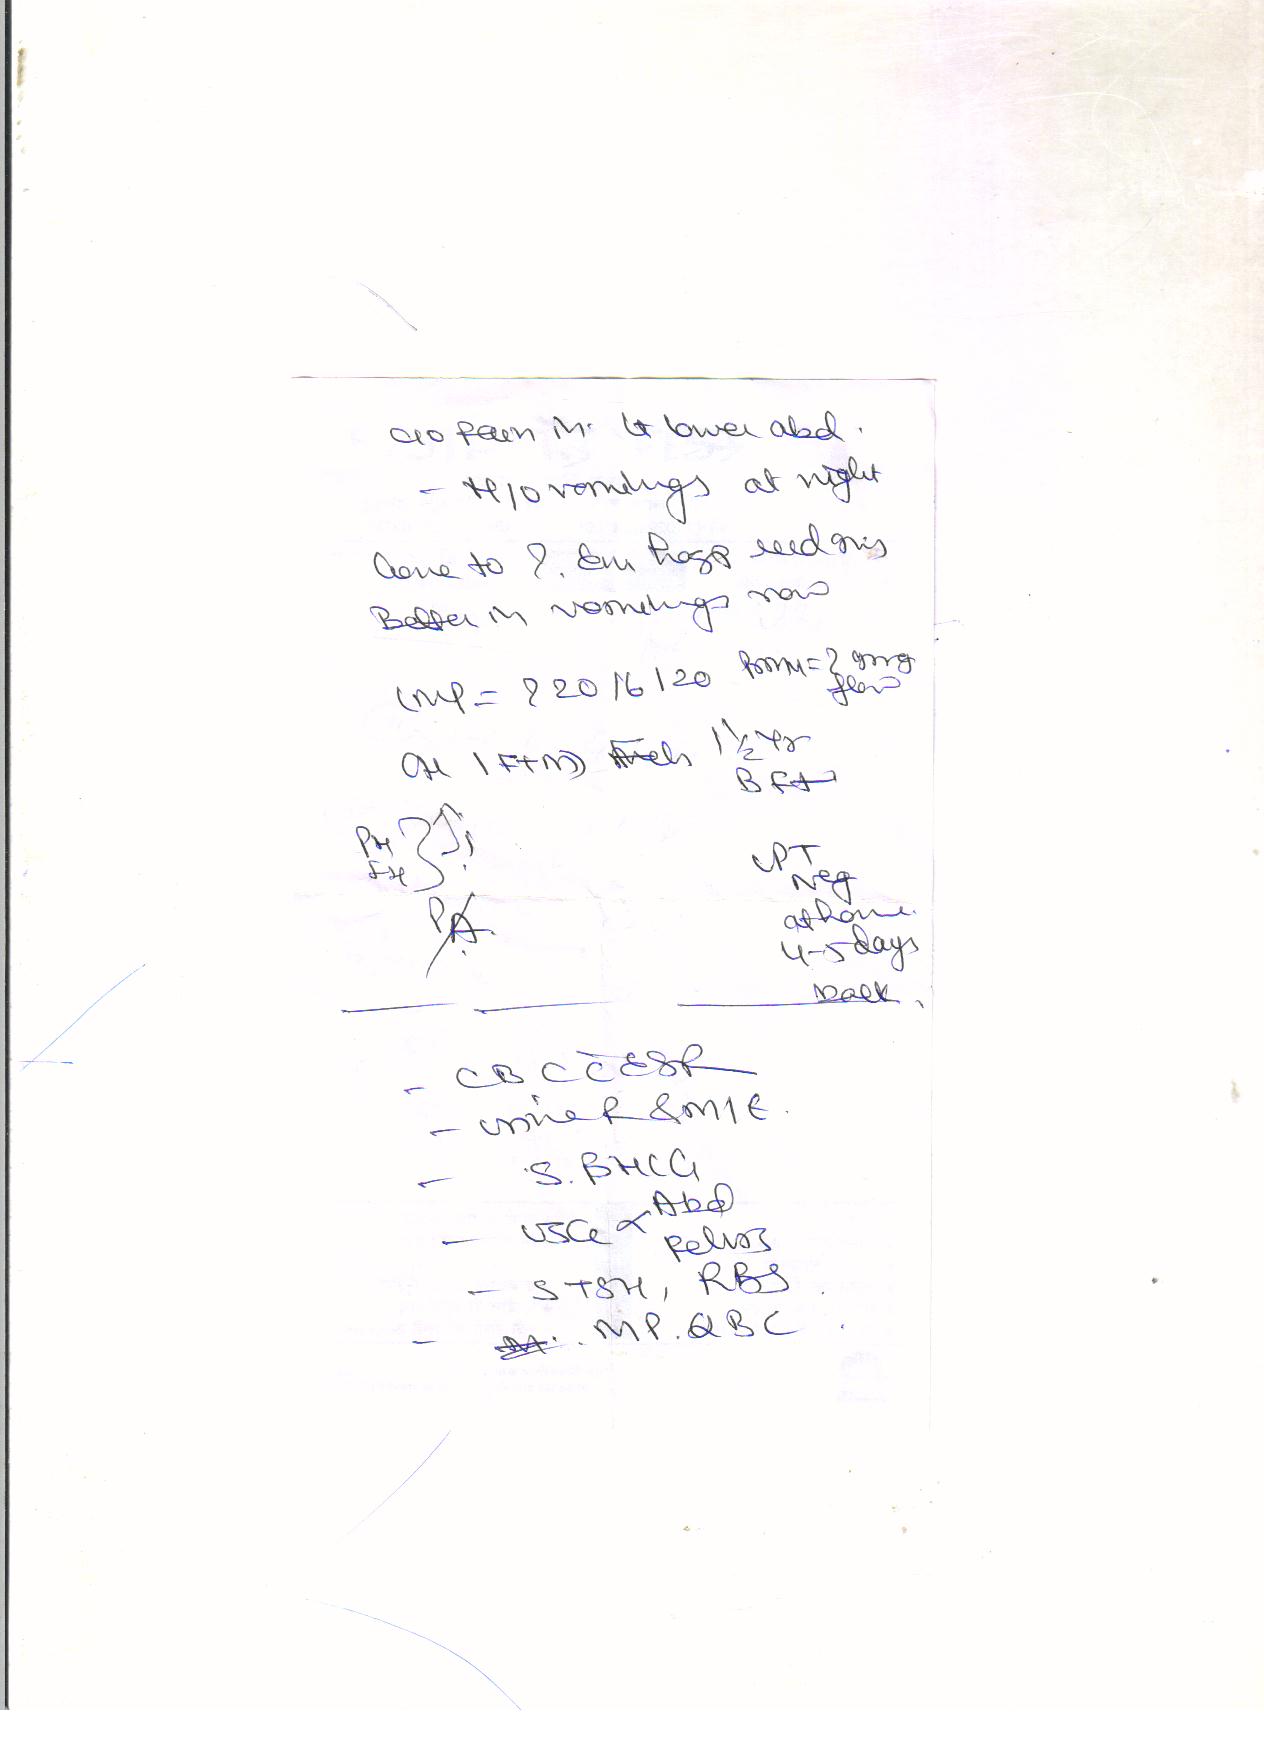 c/o pain in Lt lower abd.
- H/o vomitings at night
Gone to ?. hosp
Better in vomitings now
LMP = ? 20/6/20
flow
OH 1 FTND 1½ yr
BF+
PH
FH
P/A.
UPT
Neg
at home
4-5 days
back.
- CBC C̄ ESR
- Urine R & M/E.
- S. BHCG
- USG < Abd
Pelvis
- S TSH, RBS
- MP. QBC